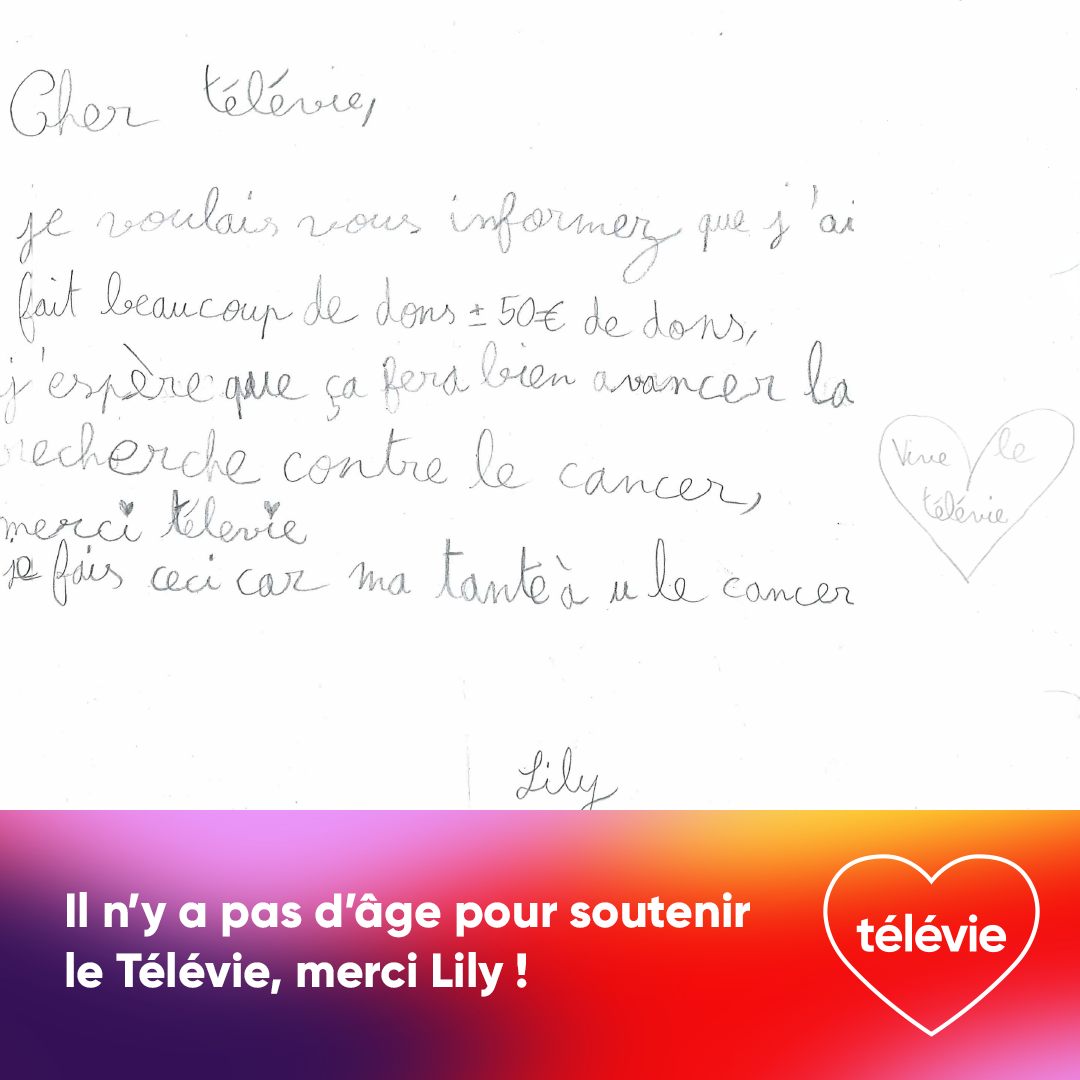 Cher télévie,
je voulais vous informez que j'ai
fait beaucoup de dons ± 50€ de dons,
j'espère que ça fera bien avancer la
recherche contre le cancer,
merci télévie
je fais ceci car ma tante à u le cancer
Vive le
télévie
Lily
Il n’y a pas d’âge pour soutenir
le Télévie, merci Lily !
télévie